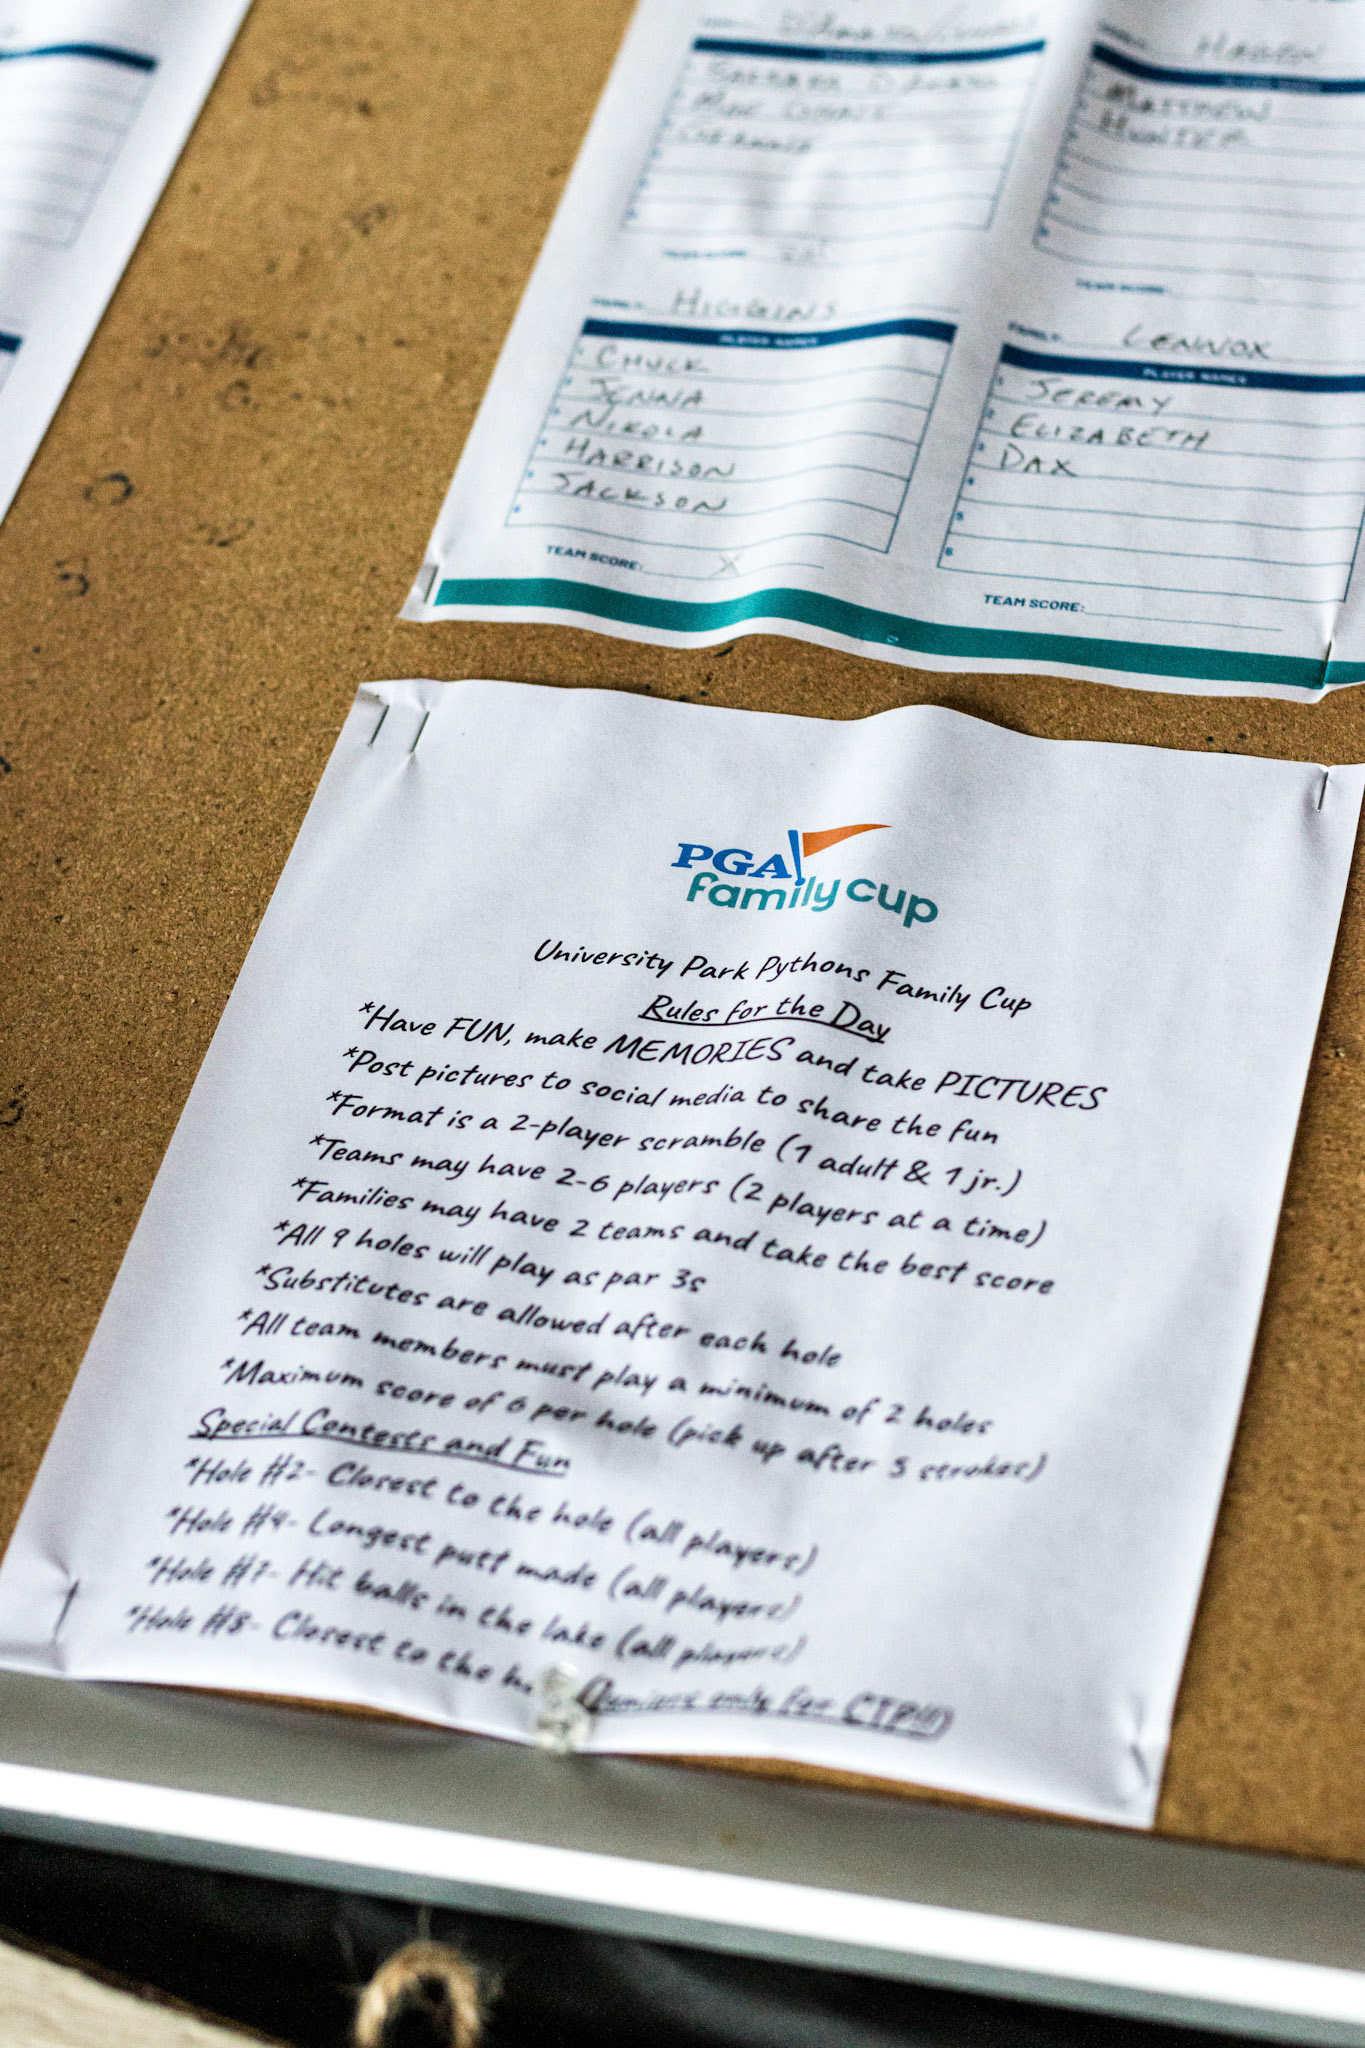 HAGEN
MATTHEW
HUNTER
HIGGINS
PLAYER NAMES
CHUCK
JENNA
NIKOLA
HARRISON
JACKSON
TEAM SCORE: X
TEAM SCORE:
LENNOX
PLAYER NAMES
1 JEREMY
2 ELIZABETH
3 DAX
4
5
6
TEAM SCORE:
PGA
family cup
University Park Pythons Family Cup
Rules for the Day
*Have FUN, make MEMORIES and take PICTURES
*Post pictures to social media to share the fun
*Format is a 2-player scramble (1 adult & 1 jr.)
*Teams may have 2-6 players (2 players at a time)
*Families may have 2 teams and take the best score
*All 9 holes will play as par 3s
*Substitutes are allowed after each hole
*All team members must play a minimum of 2 holes
*Maximum score of 6 per hole (pick up after 5 strokes)
Special Contests and Fun
*Hole #2- Closest to the hole (all players)
*Hole #4- Longest putt made (all players)
*Hole #7- Hit balls in the lake (all players)
*Hole #8- Closest to the (Juniors only for CTP!!!)